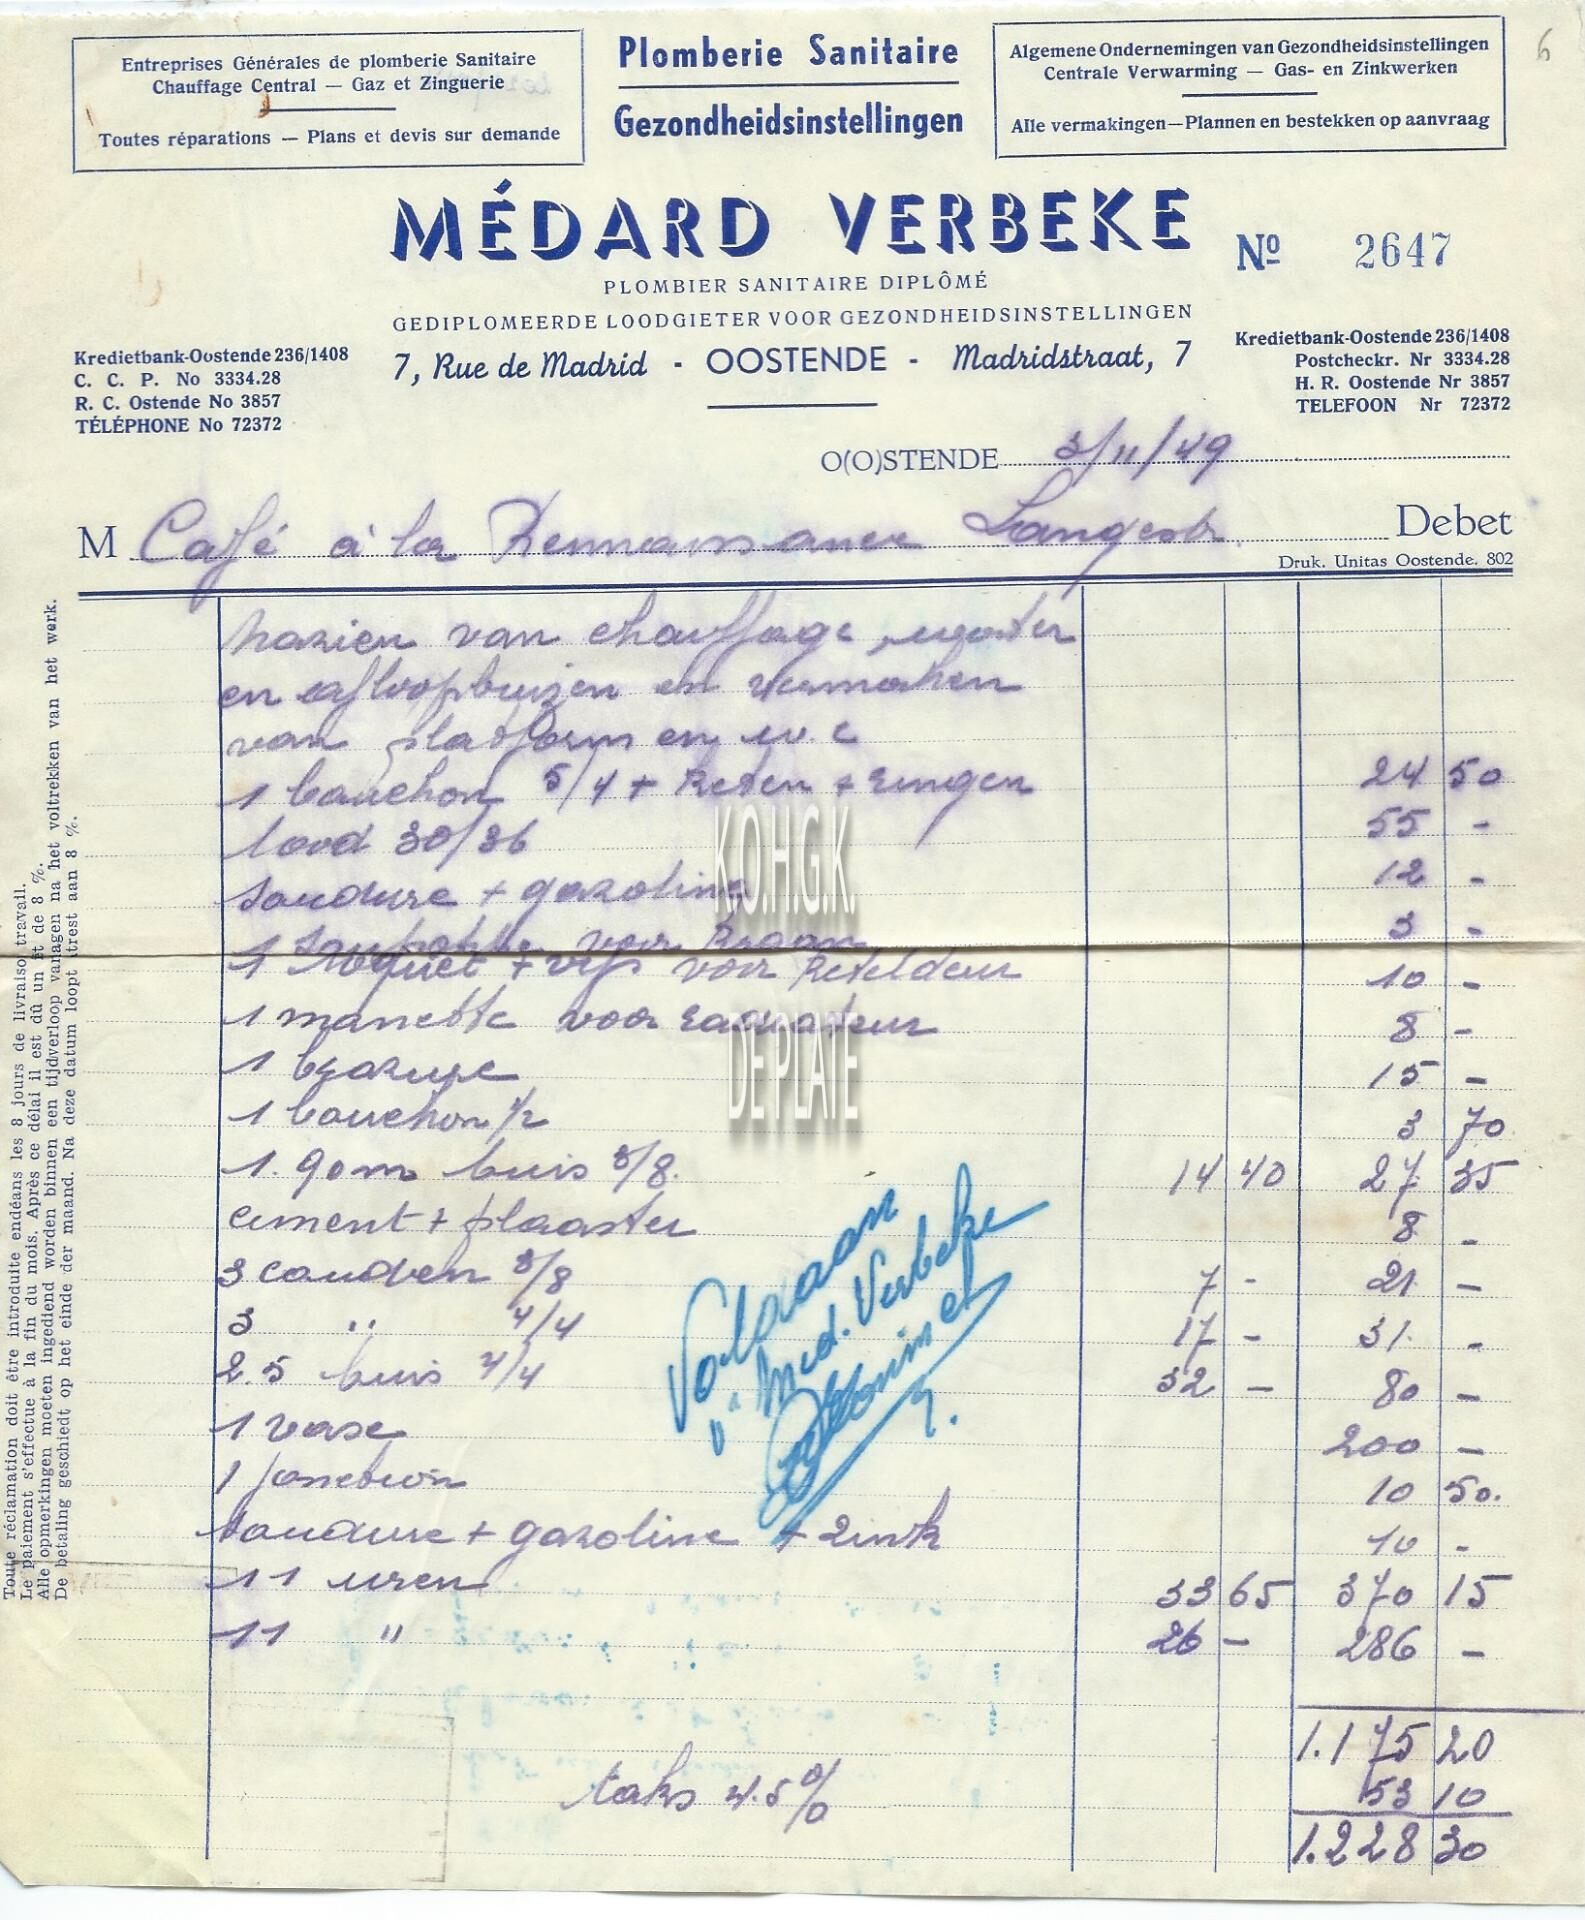 Entreprises Générales de plomberie Sanitaire
Chauffage Central — Gaz et Zinguerie
Toutes réparations — Plans et devis sur demande
Plomberie Sanitaire
Gezondheidsinstellingen
Algemene Ondernemingen van Gezondheidsinstellingen
Centrale Verwarming — Gas- en Zinkwerken
Alle vermakingen—Plannen en bestekken op aanvraag
6
MÉDARD VERBEKE
Nº 2647
PLOMBIER SANITAIRE DIPLÔMÉ
GEDIPLOMEERDE LOODGIETER VOOR GEZONDHEIDSINSTELLINGEN
7, Rue de Madrid - OOSTENDE - Madridstraat, 7
Kredietbank-Oostende 236/1408
C. C. P. No 3334.28
R. C. Ostende No 3857
TÉLÉPHONE No 72372
Kredietbank-Oostende 236/1408
Postcheckr. Nr 3334.28
H. R. Oostende Nr 3857
TELEFOON Nr 72372
O(O)STENDE 3/11/49
M Café à la Langestr. Debet
Druk. Unitas Oostende. 802
nazien van chauffage, water
en afloopbuizen en vermaken
van platform en w.c
1 bouchon 5/4 + keten + ringen 24 50
lood 30/36 55 -
soudure + gazoline 12 -
1 soupape voor kraan 3 -
1 + vijs voor keteldeur 10 -
1 manette voor radiateur 8 -
1 brasure 15 -
1 bouchon 1/2 3 70
1.90m buis 3/8. 14 40 27 35
ciment + plaaster 8 -
3 couden 3/8 7 - 21 -
3 " 4/4 17 - 31 -
2.5 buis 4/4 32 - 80 -
1 vase 200 -
1 jonction 10 50.
soudure + gazoline + zink 10 -
11 uren 33 65 370 15
11 " 26 - 286 -
1.175 20
taks 4.5% 53 10
1.228 30
Voldaan
Med. Verbeke
K.O.H.G.K.
DE PLATE
Toute réclamation doit être introduite endéans les 8 jours de livraiso travail.
Le paiement s'effectue à la fin du mois. Après ce délai il est dû un it de 8 %.
Alle opmerkingen moeten ingediend worden binnen een tijdverloop vanagen na het voltrekken van het werk.
De betaling geschiedt op het einde der maand. Na deze datum loopt trest aan 8 %.